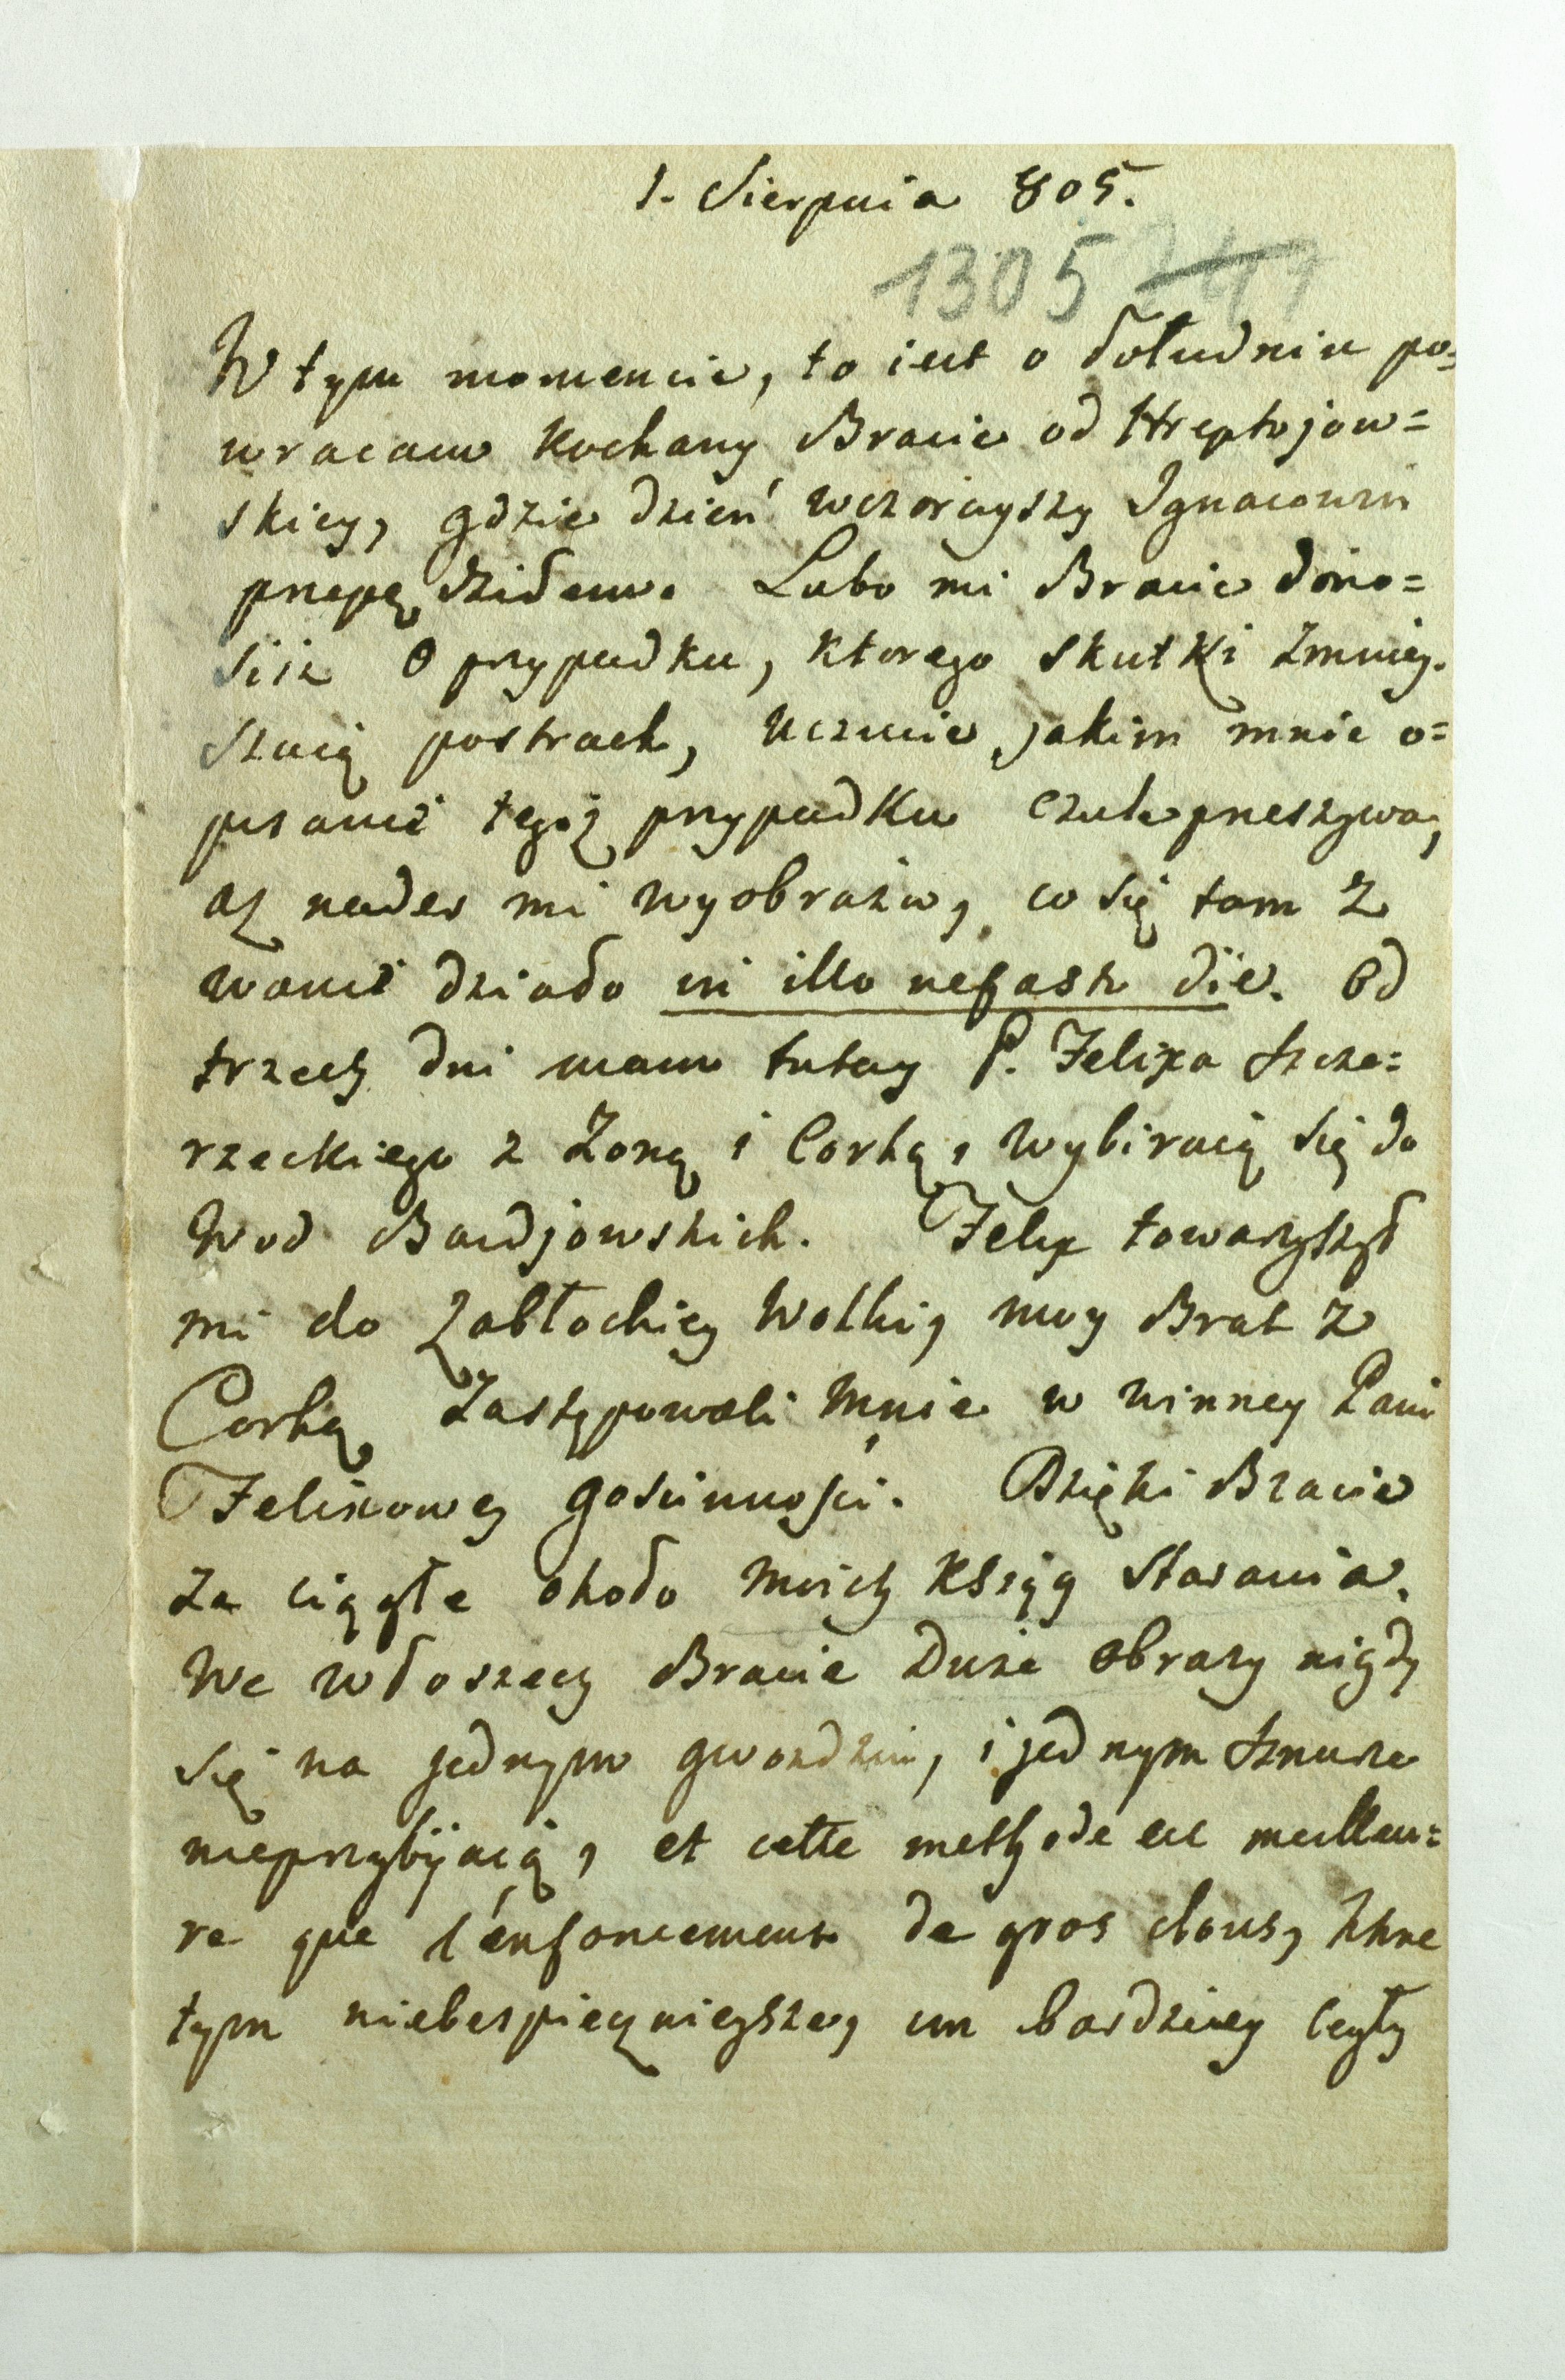 1. Sierpnia 805.
1305
W tym momencie, to iest o Południu po=
wracam Kochany Bracie od Hreptojow=
skiey, gdzie dzień wczorayszy Ignacowi
przepędziłem. Lubo mi Bracie dono=
sisz o przypadku, ktorego skutki zmniey=
szaią postrach, uczucie jakim mnie o=
pisanie tegoż przypadku czule przeszywa,
aż nadto mi wyobraża, co się tam z
wami działo in illo nefasto die. Od
trzech dni mam tutay P. Felixa Szcze=
rzeckiego z Zoną i Corką, wybiraią się do
Wod Bardjowskich. Felix towarzyszył
mi do Zabłockiey Wolki, moy Brat z
Corką zastępowali mnie w winney Pani
Felixowey gościnności. Dzięki Bracie
za ciągłe około moich Ksiąg starania.
We włoszech Bracie Duże obrazy nigdy
się na jednym gwozdziu, i jednym sznurze
nieprzybijaią, et cette methode est meilleu=
re que l'enfoncement de gros clous, ktore
tym niebespiecznieysze, im bardziey cegły